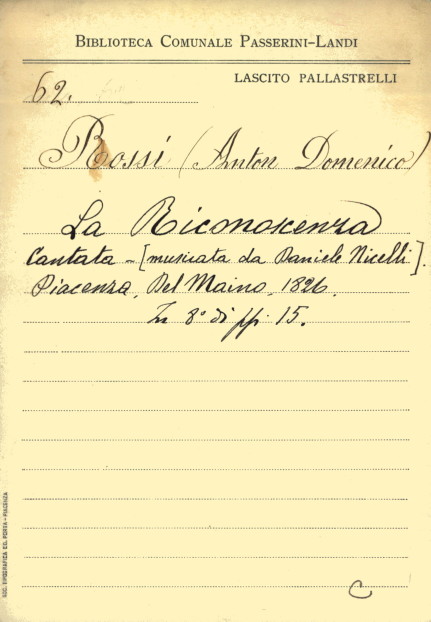 BIBLIOTECA COMUNALE PASSERINI-LANDI
LASCITO PALLASTRELLI
62.
Rossi (Anton Domenico)
La Riconoscenza
Cantata - [musicata da Daniele Nicelli].
Piacenza, Del Maino, 1826.
In 8° di pp. 15.
C
SOC. TIPOGRAFICA ED. PORTA - PIACENZA